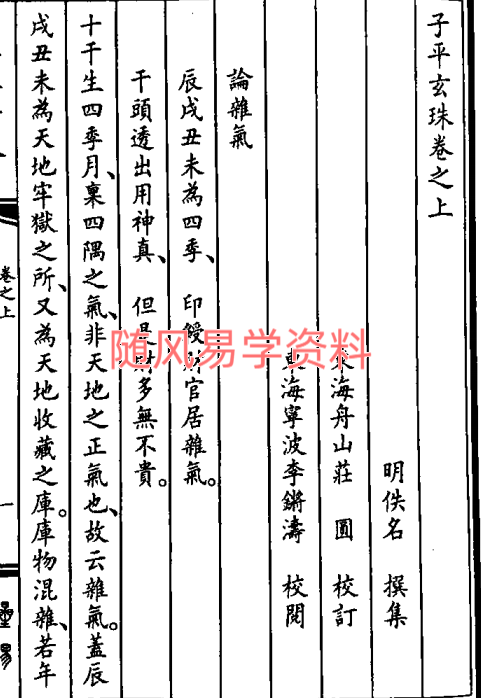 子平玄珠卷之上
明佚名 撰集
東海舟山莊 圓 校訂
東海寧波李鏘濤 校閱
論雜氣
辰戌丑未為四季、印綬財官居雜氣。
干頭透出用神真、但是財多無不貴。
十干生四季月、稟四隅之氣、非天地之正氣也、故云雜氣。蓋辰
戌丑未為天地牢獄之所、又為天地收藏之庫。庫物混雜、若年
卷之上
一
隨风易学资料